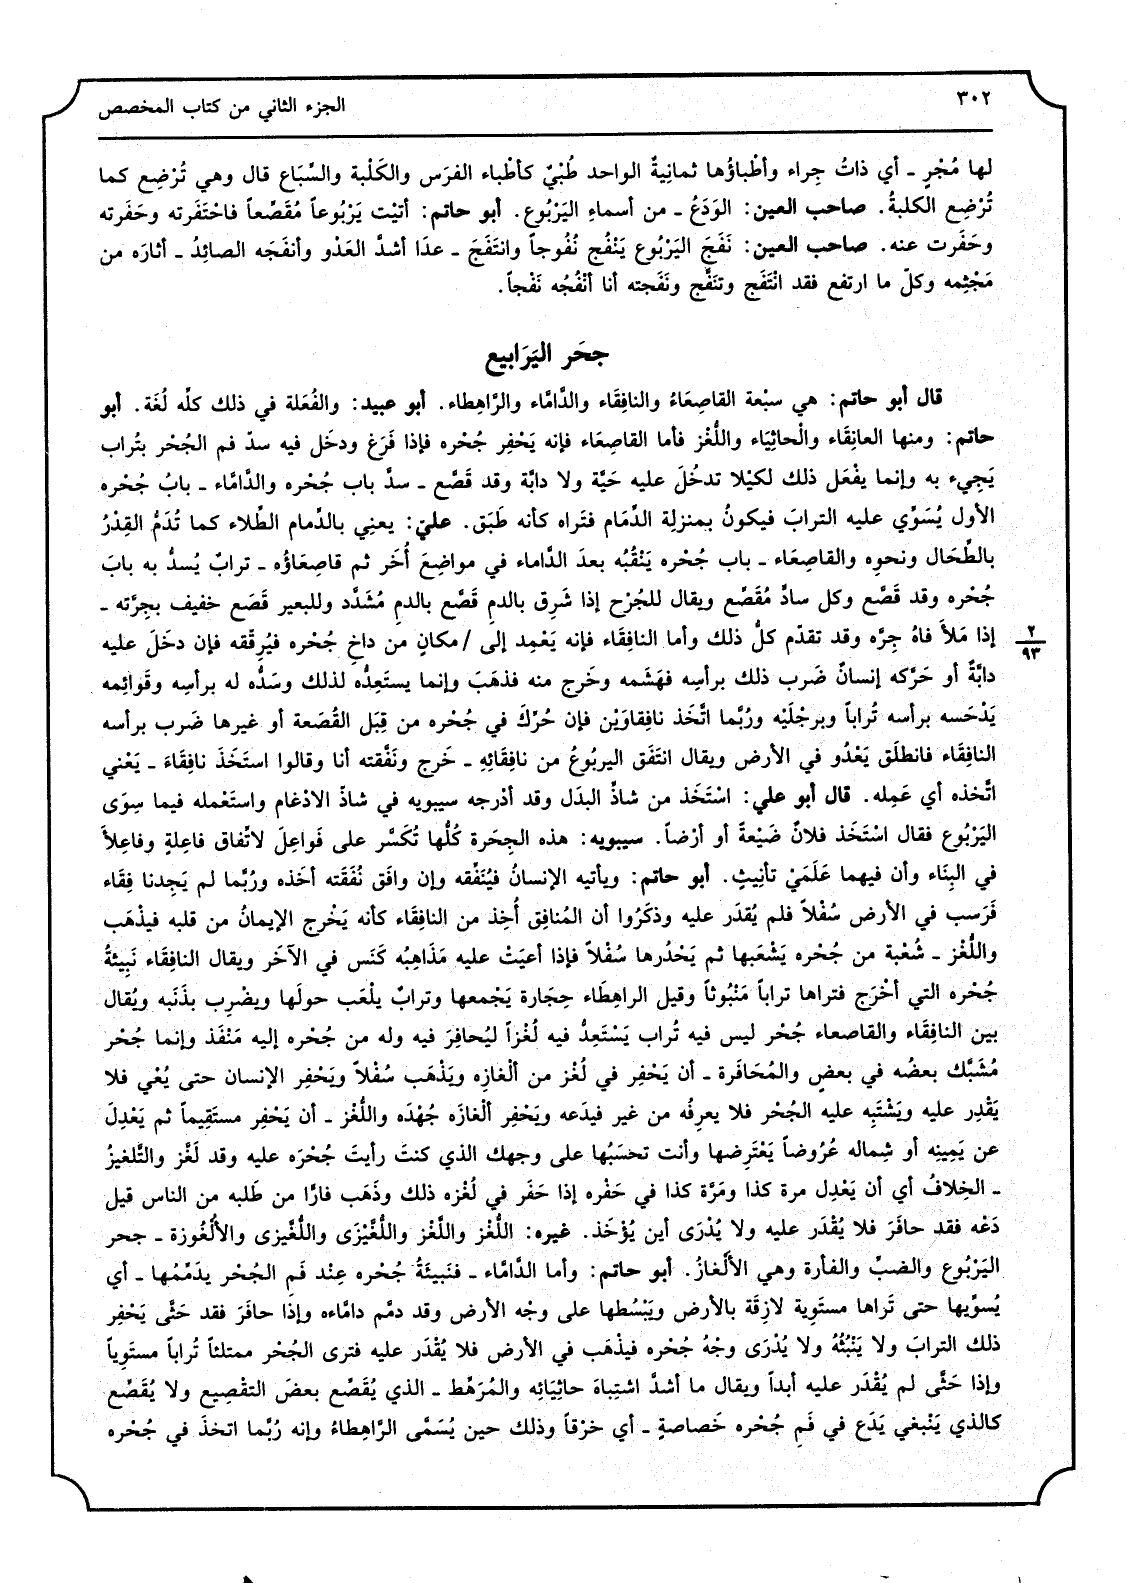 ٣٠٢
الجزء الثاني من كتاب المخصص
لها مُجْرٍ ـ أي ذاتُ جِراء وأظْباؤُها ثمانِيةٌ الواحد طُبْيٌ كأطْباء الفرَس والكَلْبة والسِّبَاع قال وهي تُرْضِع كما
تُرْضِع الكلبةُ. صاحب العين: الوَدَعُ ـ من أسماءِ اليَرْبُوع. أبو حاتم: أتيْت يَرْبُوعاً مُقَصِّعاً فاحْتَفَرته وحَفَرته
وحَفَرت عنه. صاحب العين: نَفَجَ اليَرْبُوع يَنْفُج نُفُوجاً وانتَفَجَ ـ عدَا أشدَّ العَدْو وأنفَجَه الصائِدُ ـ أثارَه من
مَجْثِمه وكلّ ما ارتفع فقد انْتَفَج وتنَفَّج ونَفَجته أنا أنْفُجُه نَفْجاً.
جحَر اليَرَابيع
قال أبو حاتم: هي سبْعة القاصِعَاءُ والنافِقَاء والدَّامَّاء والرَّاهِطاء. أبو عبيد: والفُعَلة في ذلك كلِّه لُغَة. أبو
حاتم: ومنها العانِقَاء والْحاثِيَاء واللُّغْز فأما القاصِعَاء فإنه يَحْفِر جُحْره فإذا فَرَغ ودخَل فيه سدّ فم الجُحْر بتُراب
يَجِيء به وإنما يفْعَل ذلك لكيْلا تدخُلَ عليه حَيَّة ولا دابَّة وقد قَصَّع ـ سدَّ باب جُحْره والدَّامَّاء ـ بابُ جُحْره
الأول يُسَوِّي عليه الترابَ فيكونُ بمنزلة الدِّمَام فتَراه كأنه طَبَق. عليّ: يعنِي بالدِّمام الطِّلاء كما تُدَمُّ القِدْرُ
بالطِّحَال ونحوِه والقاصِعَاء ـ باب جُحْره يَنْقُبُه بعدَ الدَّاماء في مواضِعَ أُخَر ثم قاصِعَاؤُه ـ ترابٌ يُسدُّ به بابَ
جُحْره وقد قَصَّع وكل سادٍّ مُقَصِّع ويقال للجُرْح إذا شَرِق بالدمِ قَصَّع بالدمِ مُشَدَّد وللبعير قَصَع خفيف بجِرَّته ـ
إذا مَلأَ فاهُ جِرَّه وقد تقدّم كلُّ ذلك وأما النافِقَاء فإنه يَعْمِد إلى /مكانٍ من داخِ جُحْره فيُرِقّقه فإن دخَلَ عليه
٢
٩٣
دابَّةٌ أو حَرَّكه إنسانٌ ضَرب ذلك برأسِه فهَشَمه وخَرج منه فذهَبَ وإنما يستَعِدُّه لذلك وسَدُّه له برأسِه وقَوائِمه
يَدْحَسه برأسه تُراباً وبرجْلَيْه ورُبَّما اتَّخذ نافِقاوَيْن فإن حُرّكَ في جُحْره من قِبَل القُصَعة أو غيرها ضَرب برأسه
النافِقَاء فانطلَق يَعْدُو في الأرض ويقال انتَفَق اليربُوعُ من نافِقَائِهِ ـ خَرج ونَفَّقته أنا وقالوا استَخَذ نافِقَاءَ ـ يَعْني
اتَّخذه أي عَمِله. قال أبو علي: اسْتَخَذ من شاذِّ البَدَل وقد أدْرجه سيبويه في شاذّ الادْغام واستَعْمله فيما سِوَى
اليَرْبُوع فقال اسْتَخَذ فلانٌ ضَيْعةً أو أرْضاً. سيبويه: هذه الجِحَرة كُلُّها تُكَسَّر على فَواعِلَ لاتِّفاق فاعِلةٍ وفاعِلاَ
في البِنَاء وأن فيهما عَلَمَيْ تأنيثٍ. أبو حاتم: ويأتيه الإنسانُ فيُنَفِّقه وإن وافَق نُفَقَته أخَذه ورُبَّما لم يَجِدنا فِقَاء
فَرَسب في الأرض سُفْلاً فلم يُقدَر عليه وذكَرُوا أن المُنافِق أُخِذ من النافِقَاء كأنه يَخْرج الإيمانُ من قلبه فيذْهَب
واللُّغْز ـ شُعْبة من جُحْره يَشْعَبها ثم يَحْدُرها سُفْلاً فإذا أعيَتْ عليه مَذَاهِبُه كَنَس في الآخَر ويقال النافِقَاء نَبِيئةُ
جُحْره التي أخْرَج فتراها تراباً مَنْبُوثاً وقيل الراهِطَاء حِجَارة يَجْمعها وترابٌ يلْعَب حولَها ويضْرِب بذَنَبه ويُقال
بين النافِقَاء والقاصعاء جُحْر ليس فيه تُراب يَسْتَعِدُّ فيه لُغْزاً ليُحافِرَ فيه وله من جُحْره إليه مَنْفَذ وإنما جُحْر
مُشَبَّك بعضُه في بعضٍ والمُحَافَرة ـ أن يَحْفِر في لُغْز من ألْغازِه ويَذْهَب سُفْلاً ويَحْفِر الإنسان حتى يُعْي فلا
يَقْدِر عليه ويَشْتَبِه عليه الجُحْر فلا يعرِفُه من غير فيدَعه ويَحْفِر ألْغازَه جُهْدَه واللُّغْز ـ أن يَحْفِر مستَقِيماً ثم يَعْدِلَ
عن يَمِينِه أو شِماله عُرُوضاً يَعْتَرِضها وأنت تحسَبُها على وجهك الذي كنتَ رأيتَ جُحْرَه عليه وقد لَغَّز والتَّلغيزُ
ـ الخِلافُ أي أن يَعْدِل مرة كذا ومَرَّة كذا في حَفْره إذا حَفَر في لُغْزه ذلك وذَهَب فارًا من طَلبه من الناس قيل
دَعْه فقد حافَرَ فلا يُقْدَر عليه ولا يُدْرَى أين يُؤْخَذ. غيره: اللُّغْز واللَّغْز واللُّغَّيْزَى واللُّغَّيزى والأُلْغُوزة ـ جحر
اليَرْبُوع والضبِّ والفأرة وهي الألْغازُ. أبو حاتم: وأما الدَّامَّاء ـ فنَبِيثَةُ جُحْره عِنْد فَمِ الجُحْر يدَمِّمُها ـ أي
يُسوِّيها حتى تَراها مستَوِية لازِقَة بالأرض ويَبْسُطها على وجْه الأرض وقد دمَّم دامَّاءه وإذا حافَرَ فقد حَثَّى يَحْفِر
ذلك الترابَ ولا يَنْبُثُهُ ولا يُدْرَى وجْهُ جُحْره فيذْهَب في الأرض فلا يُقْدَر عليه فترى الجُحْر ممتلئاً تُراباً مستَوِياً
وإذا حَثَّى لم يُقْدَر عليه أبداً ويقال ما أشدَّ اشتِباهَ حاثِيَائِه والمُرَهِّط ـ الذي يُقَصِّع بعضَ التقْصِيع ولا يُقَصِّع
كالذي يَنْبغي يَدَع في فَمِ جُحْره خَصاصةٍ ـ أي خرْقاً وذلك حين يُسَمَّى الرَّاهِطاءُ وإنه رُبَّما اتخذَ في جُحْره